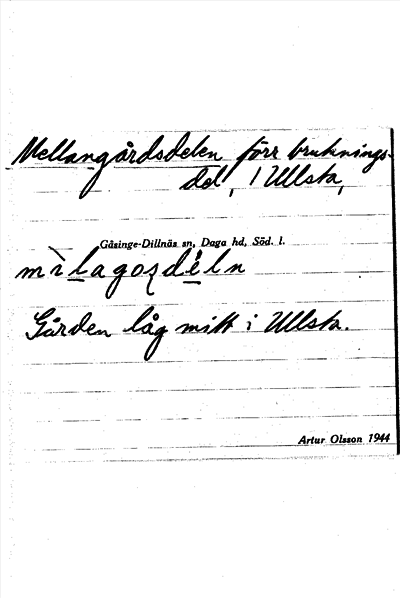 Mellangårdsdelen förr bruknings-
del, i Ullsta,
Gåsinge-Dillnäs sn, Daga hd, Söd. l.
Gården låg mitt i Ullsta.
Artur Olsson 1944